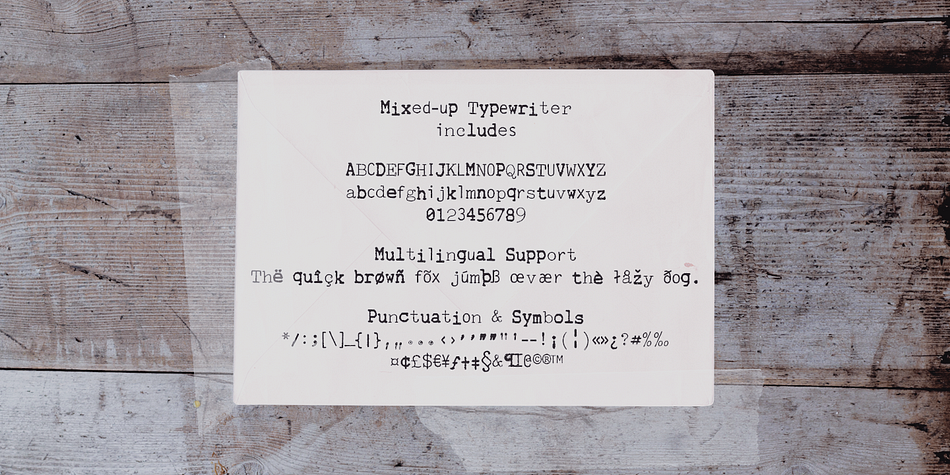 Mixed-up Typewriter
includes
ABCDEFGHIJKLMNOPQRSTUVWXYZ
abcdefghijklmnopqrstuvwxyz
0123456789
Multilingual Support
Thë quîçk brøwñ fõx júmþß œvær thè łåžy ðog.
Punctuation & Symbols
*/:;[\]_{|},„...‹›’‚❞❞"''--!¡(¦)«»¿?#%‰
¤¢£$€¥ƒ†‡§&¶@©®™